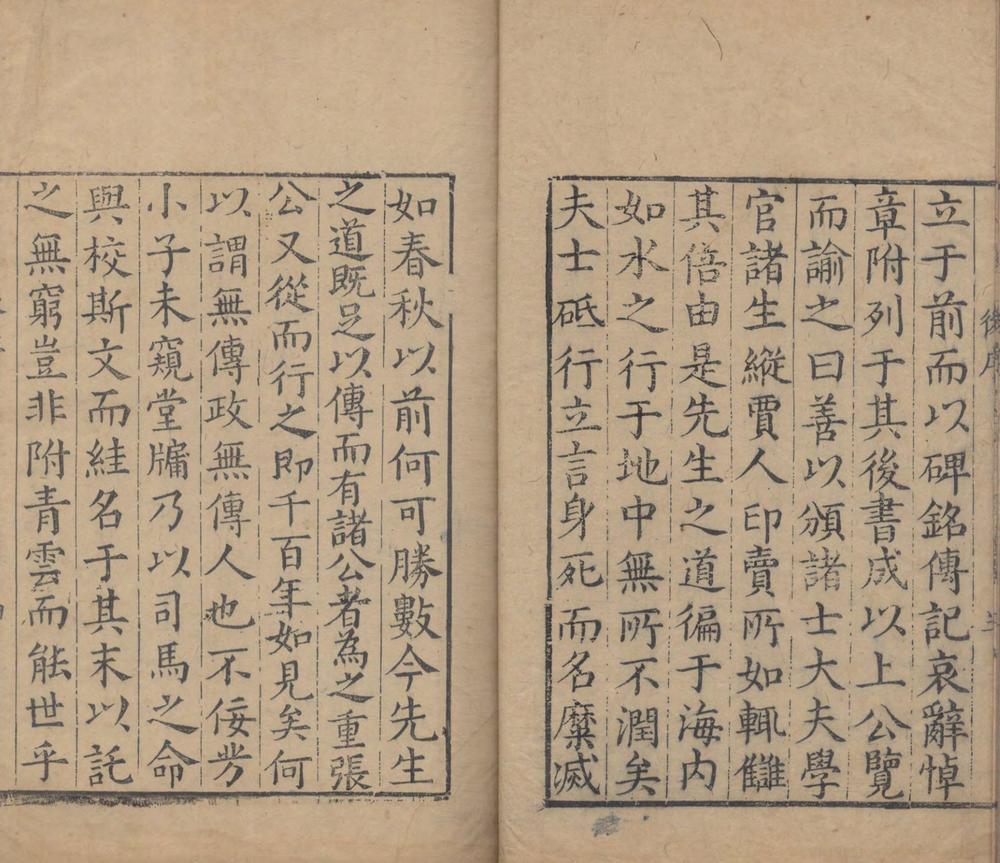 後序
立于前而以碑銘傳記哀辭悼
章附列于其後書成以上公覽
而諭之曰善以頒諸士大夫學
官諸生縱賈人印賣所如輒讎
其倍由是先生之道徧于海内
如水之行于地中無所不潤矣
夫士砥行立言身死而名糜滅
如春秋以前何可勝數今先生
之道既足以傳而有諸公者為之重張
公又從而行之即千百年如見矣何
以謂無傳政無傳人也不佞岁
小子未窺堂牖乃以司馬之命
與校斯文而絓名于其末以託
之無窮豈非附青雲而能世乎